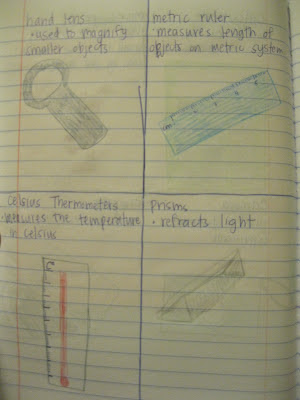 hand lens
• used to magnify
smaller objects
metric ruler
• measures length of
objects on metric system
Celsius Thermometers
• measures the temperature
in celsius
Prisms
• refracts light
C